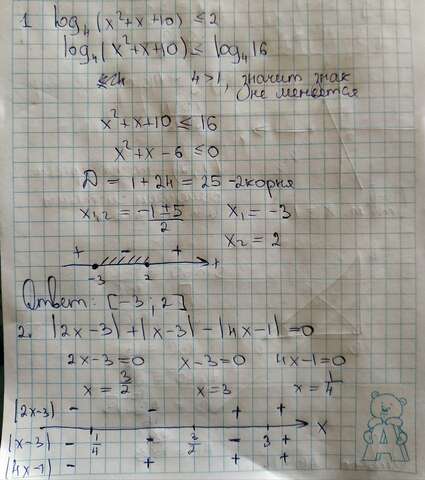 1 log₄(x²+x+10) ≤ 2
log₄(x²+x+10) ≤ log₄16
4>1, значит знак
не меняется
x²+x+10 ≤ 16
x²+x-6 ≤ 0
D = 1+24 = 25 - 2 корня
x₁,₂ = (-1±5)/2 x₁ = -3
x₂ = 2
+ - +
-3 2
Ответ: [-3; 2]
2. |2x-3|+|x-3|-|4x-1|=0
2x-3=0 x-3=0 4x-1=0
x = 3/2 x=3 x = 1/4
|2x-3) - - + +
x
(x-3) - 1/4 - 3/2 - 3 +
(4x-1) - + + +